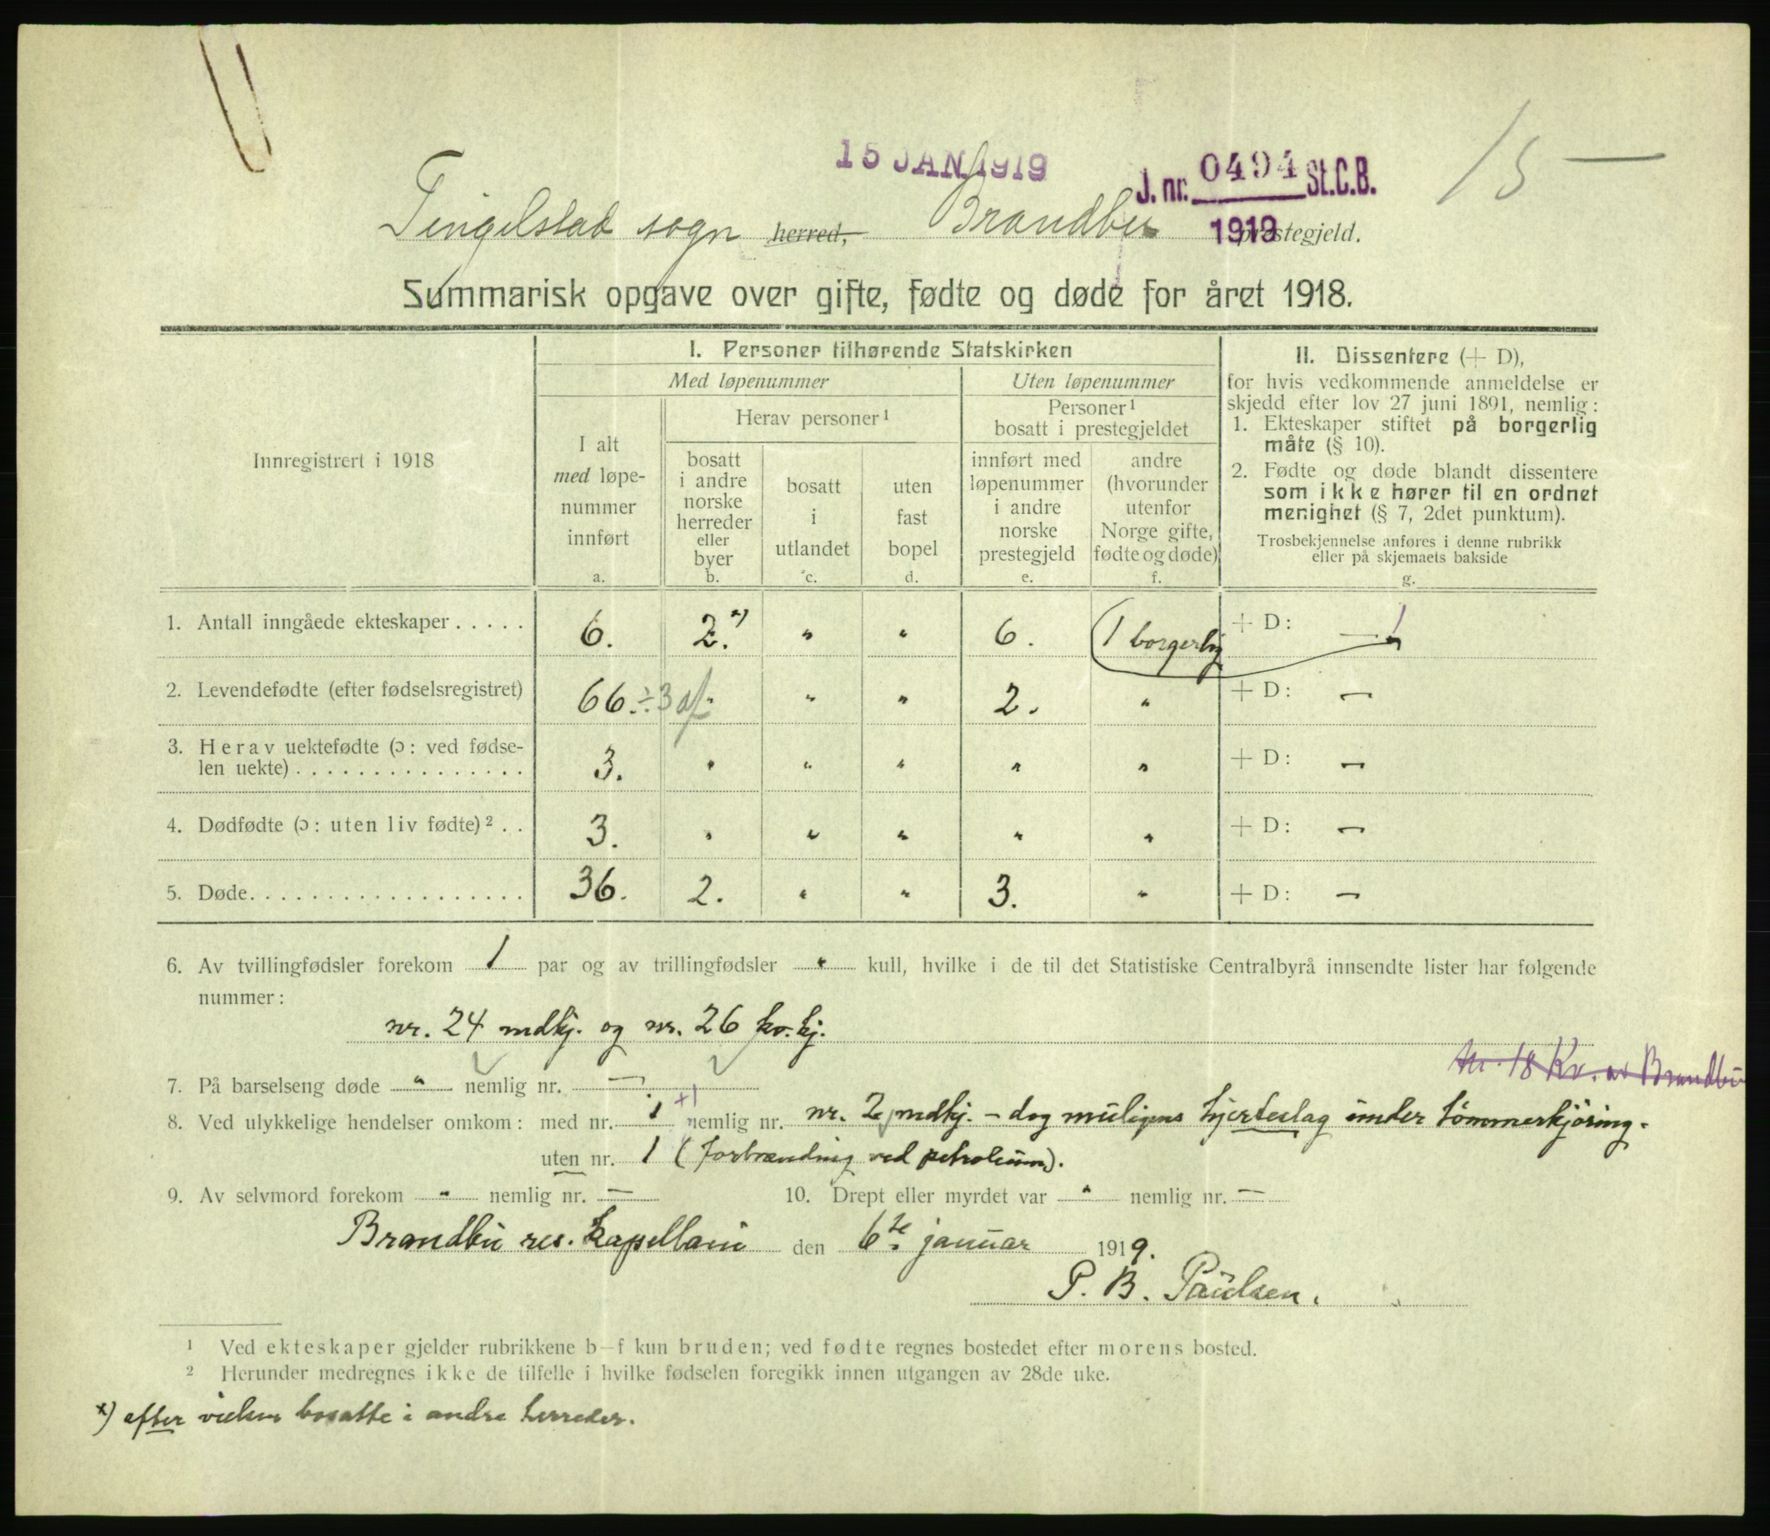 15 JAN 1919
J. nr. 0494 St.C.B.
1919
15 —
Tingelstad sogn herred, Brandbu prestegjeld.
Summarisk opgave over gifte, fødte og døde for året 1918.
Innregistrert i 1918
I. Personer tilhørende Statskirken
Med løpenummer
Uten løpenummer
I alt
med løpe-
nummer
innført
a.
Herav personer¹
bosatt
i andre
norske
herreder
eller
byer
b.
bosatt
i
utlandet
c.
uten
fast
bopel
d.
Personer¹
bosatt i prestegjeldet
innført med
løpenummer
i andre
norske
prestegjeld
e.
andre
(hvorunder
utenfor
Norge gifte,
fødte og døde)
f.
II. Dissentere (+ D),
for hvis vedkommende anmeldelse er
skjedd efter lov 27 juni 1891, nemlig:
1. Ekteskaper stiftet på borgerlig
måte (§ 10).
2. Fødte og døde blandt dissentere
som ikke hører til en ordnet
menighet (§ 7, 2det punktum).
Trosbekjennelse anføres i denne rubrikk
eller på skjemaets bakside
g.
1. Antall inngåede ekteskaper . . . . . 6. 2. x) " " 6. (1 borgerlig + D: — 1
2. Levendefødte (efter fødselsregistret) 66. ÷3 df " " " 2. " + D: —
3. Herav uektefødte (ɔ: ved fødse-
len uekte) . . . . . . . . . . . . . . . 3. " " " " " + D: —
4. Dødfødte (ɔ: uten liv fødte)² . . 3. " " " " " + D: —
5. Døde. . . . . . . . . . . . . . . . . . 36. 2. " " 3. " + D: —
6. Av tvillingfødsler forekom 1 par og av trillingfødsler " kull, hvilke i de til det Statistiske Centralbyrå innsendte lister har følgende
nummer:
nr. 24 mdkj. og nr. 26 kv.kj.
nr. 18 Kv. av Brandbu
7. På barselseng døde " nemlig nr. —
8. Ved ulykkelige hendelser omkom: med nr. 1 +1 nemlig nr. nr. 2 mdkj. – dog muligens hjerteslag under tømmerkjøring.
uten nr. 1 (forbrænding ved petroleum).
9. Av selvmord forekom " nemlig nr. — 10. Drept eller myrdet var " nemlig nr. —
Brandbu res. kapellani den 6te januar 1919.
P. B. Paulsen.
¹ Ved ekteskaper gjelder rubrikkene b–f kun bruden; ved fødte regnes bostedet efter morens bosted.
² Herunder medregnes ikke de tilfelle i hvilke fødselen foregikk innen utgangen av 28de uke.
x) efter vielsen bosatte i andre herreder.